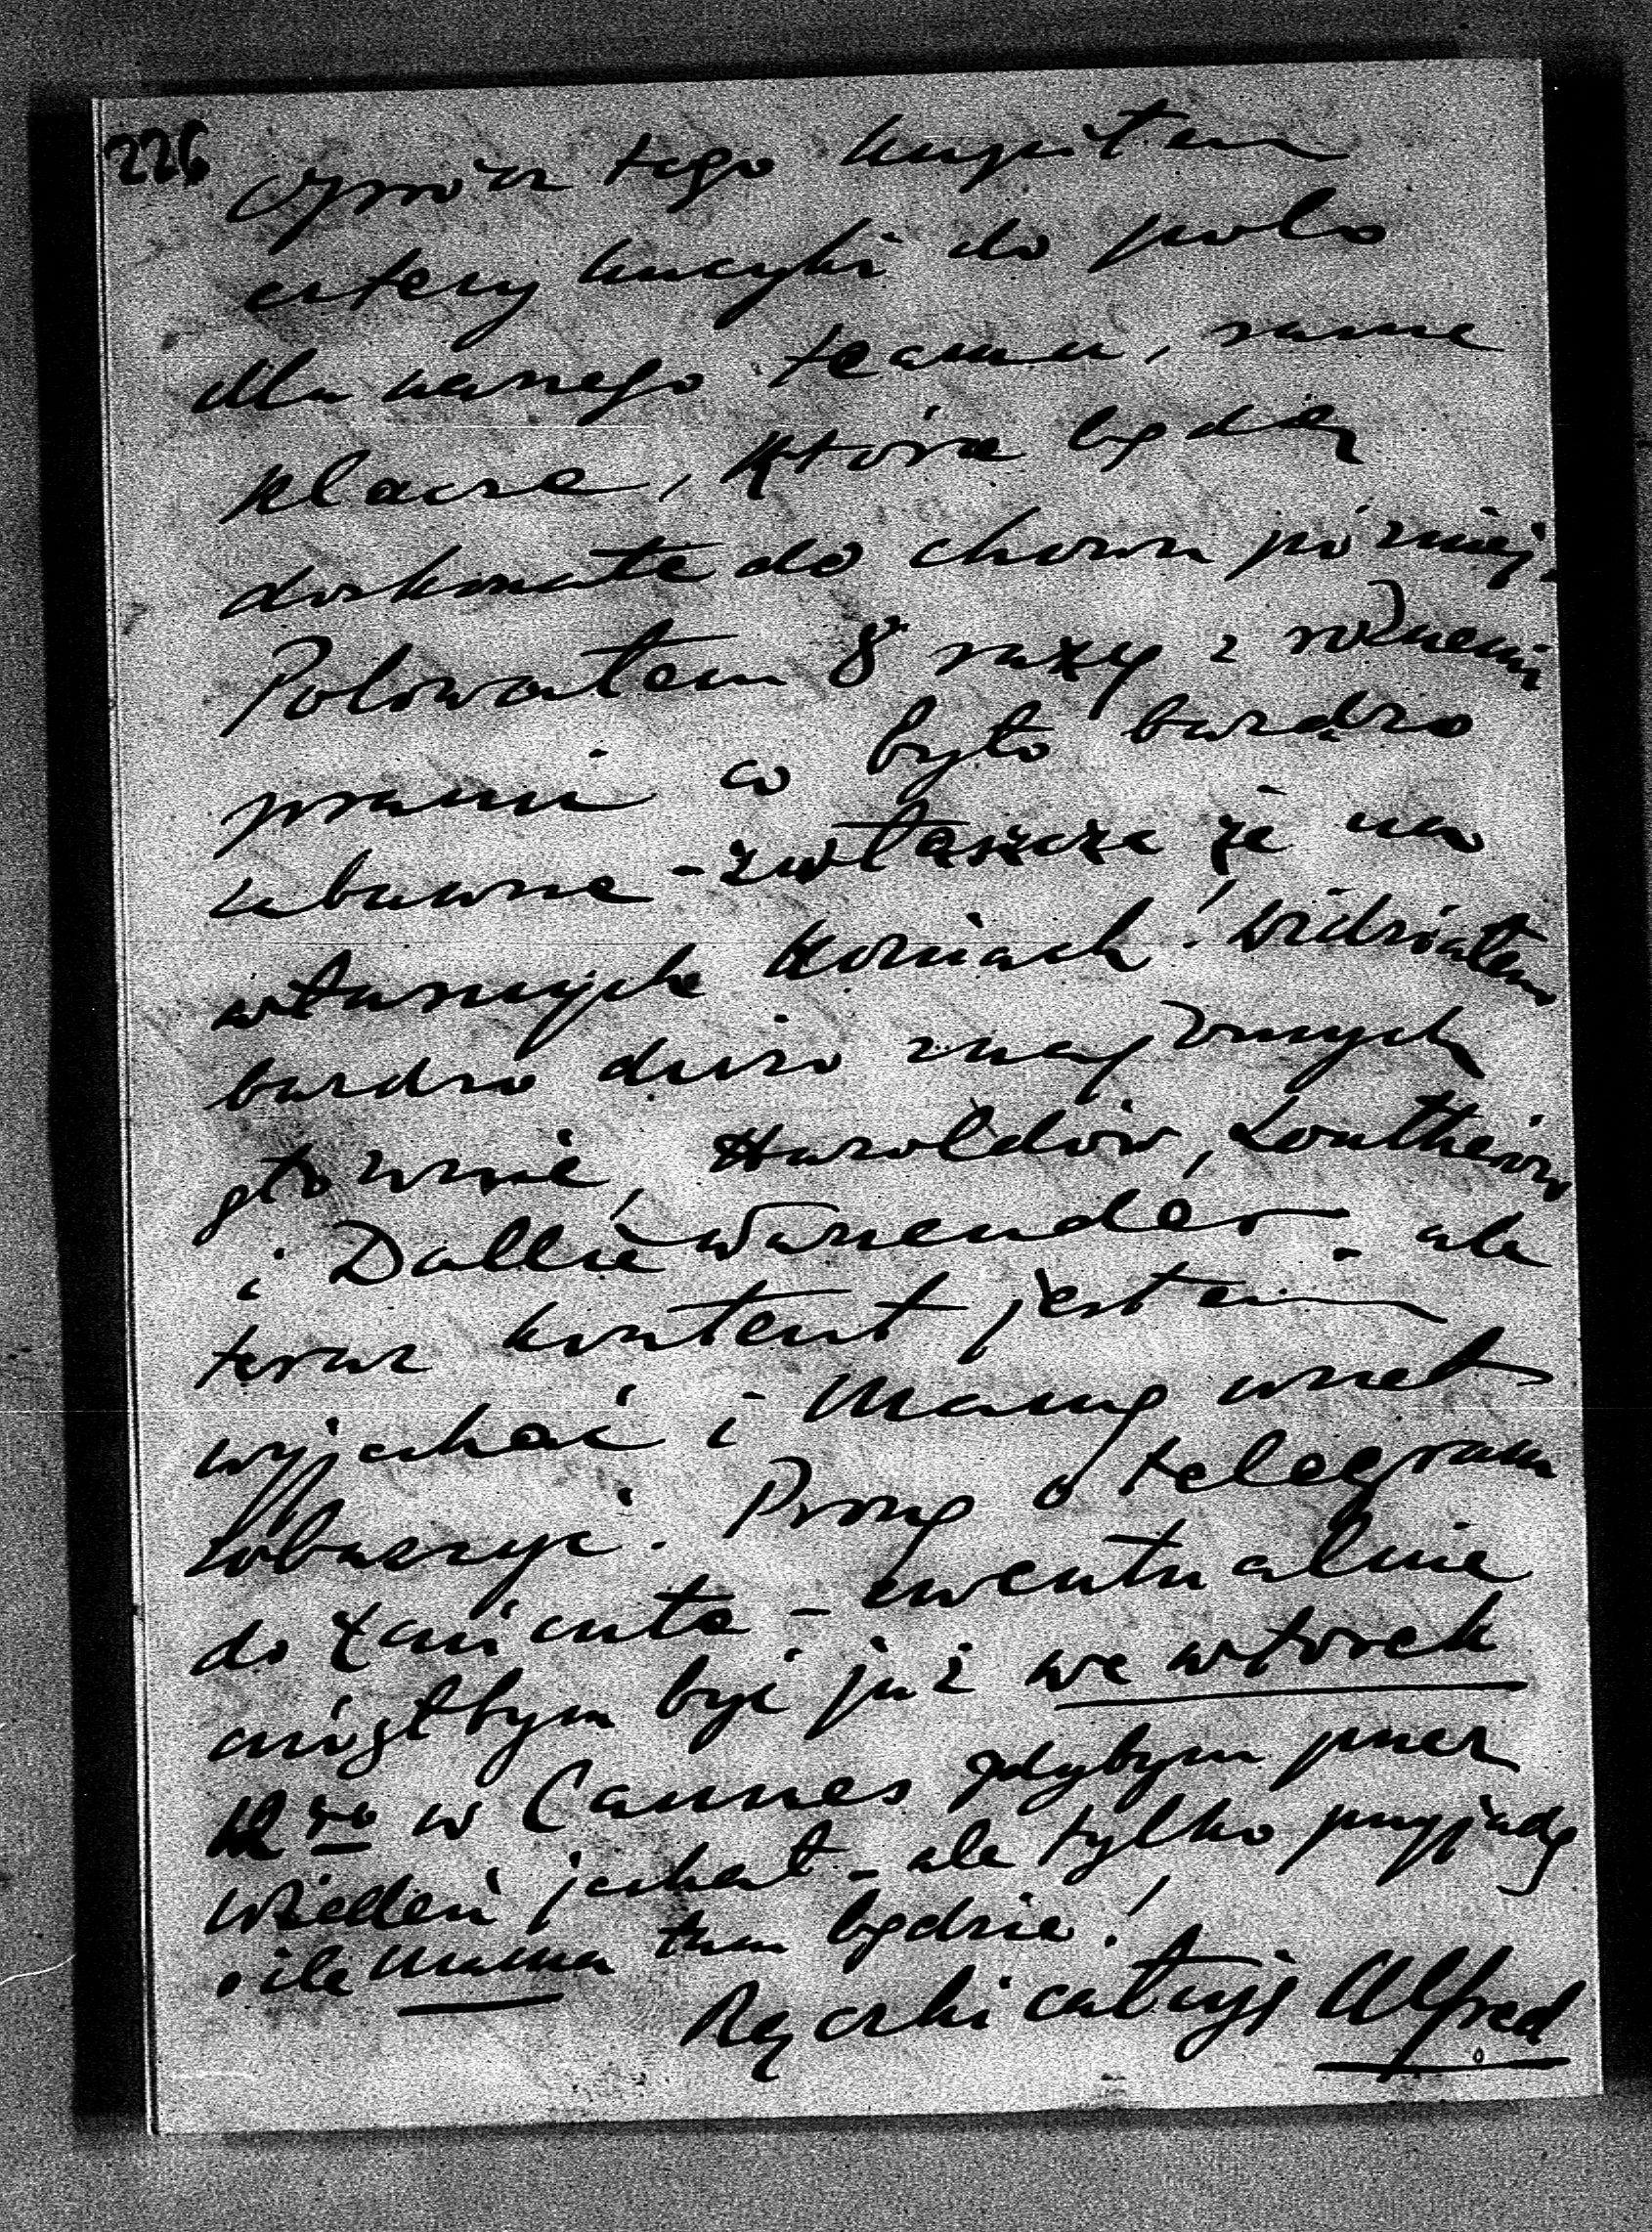 226
Oprócz tego kupiłem
cztery kucyki do polo
dla naszego teamu, same
klacze, które będą
doskonałe do chowu później.
Polowałem 8 razy z różnemi
psami co było bardzo
zabawne - zwłaszcza że na
własnych koniach! Widziałem
bardzo dużo znajomych
głównie Haroldów,
i Dollie Warrender - ale
teraz kontent jestem
wyjechać i Mamę wnet
zobaczyć. Proszę o telegram
do Łańcuta - ewentualnie
mógłbym być już we wtorek
12go w Cannes gdybym przez
Wiedeń jechał - ale tylko przyjadę
o ile Mama tam będzie!
Rączki całuję Alfred